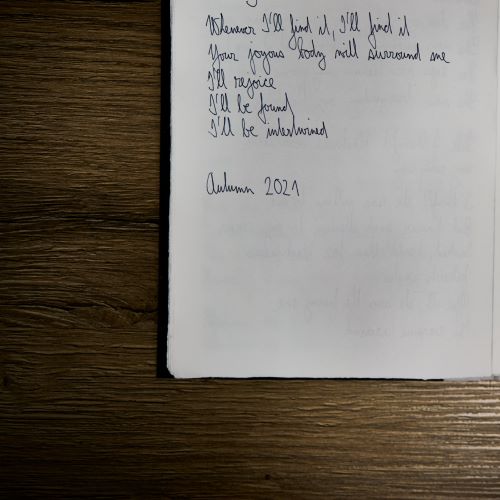 Whenever I'll find it, I'll find it
Your joyous body will surround me
I'll rejoice
I'll be found
I'll be intertwined
Autumn 2021